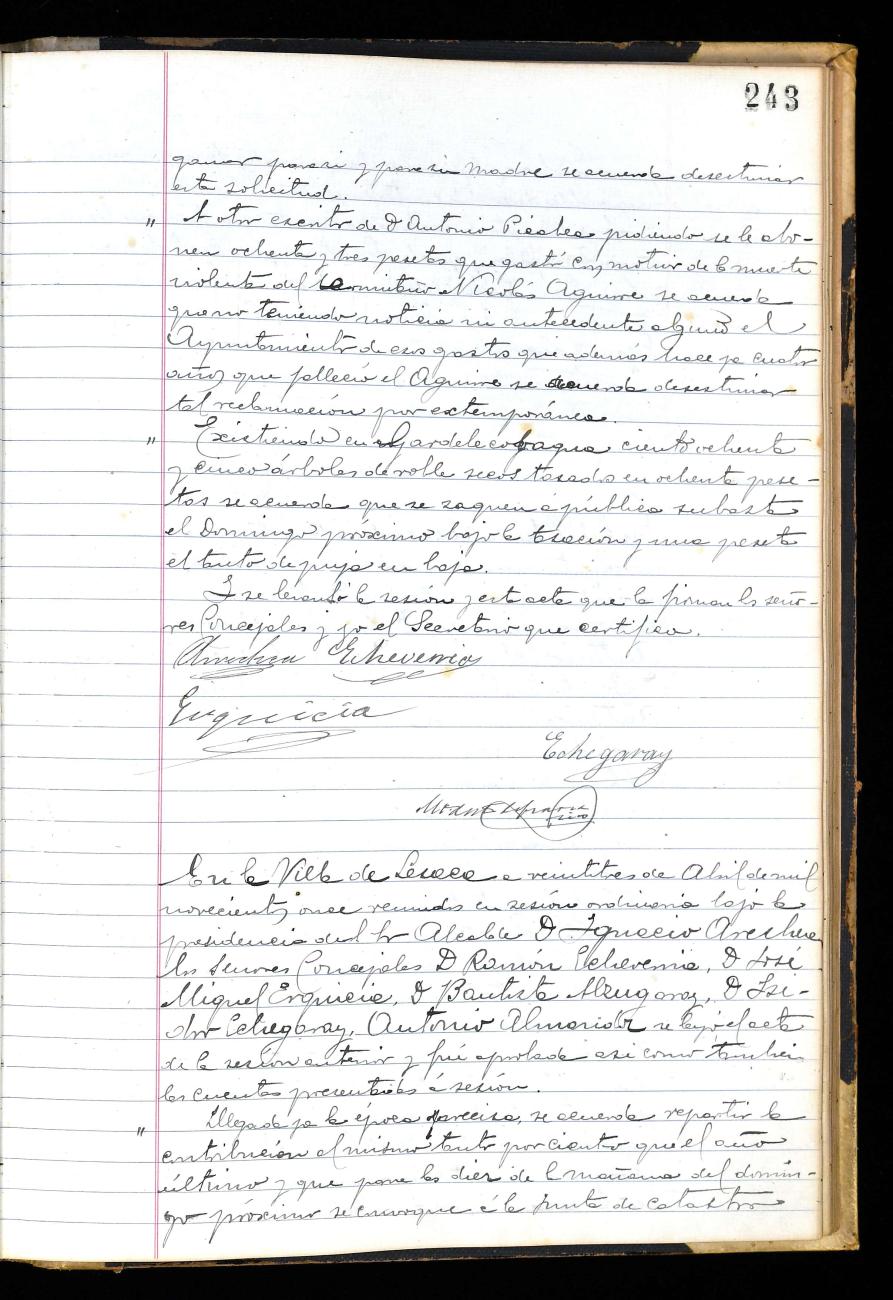 243
ganar para si y para su madre se acuerda desestimar
esta solicitud.
" A otro escrito de D Antonio Picabea pidiendo se le abo-
nen ochenta y tres pesetas que gastó con motivo de la muerte
violenta del ermitaño Nicolás Aguirre se acuerda
que no teniendo noticia ni antecedente alguno el
Ayuntamiento de esos gastos que además hace ya cuatro
años que falleció el Aguirre se acuerda desestimar
tal reclamación por extemporánea.
" Existiendo en ciento ochenta
y cinco árboles de roble secos tasados en ochenta pese-
tas se acuerda que se saquen á pública subasta
el Domingo próximo bajo la tasación y una peseta
el tanto de puja en baja.
Y se levantó la sesión y esta acta que la firman los seño-
res Concejales y yo el Secretario que certifico.
Arrechea Echeverria
Erquicia
Echegaray
En la Villa de Lesaca a veintitres de Abril de mil
novecientos once reunidos en sesión ordinaria bajo la
presidencia del Sr Alcalde D Ignacio Arrechea
los Señores Concejales D Ramón Echeverria, D José
Miguel Erquicia, D Bautista Alzugaray, D Isi-
dro Echegaray, Antonio Almandoz se leyó el acta
de la sesión anterior y fué aprobada asi como tambien
las cuentas presentadas á sesión.
" Llegada ya la época precisa, se acuerda repartir la
contribución al mismo tanto por ciento que el año
último y que para las diez de la mañana del domin-
go próximo se convoque á la Junta de catastro